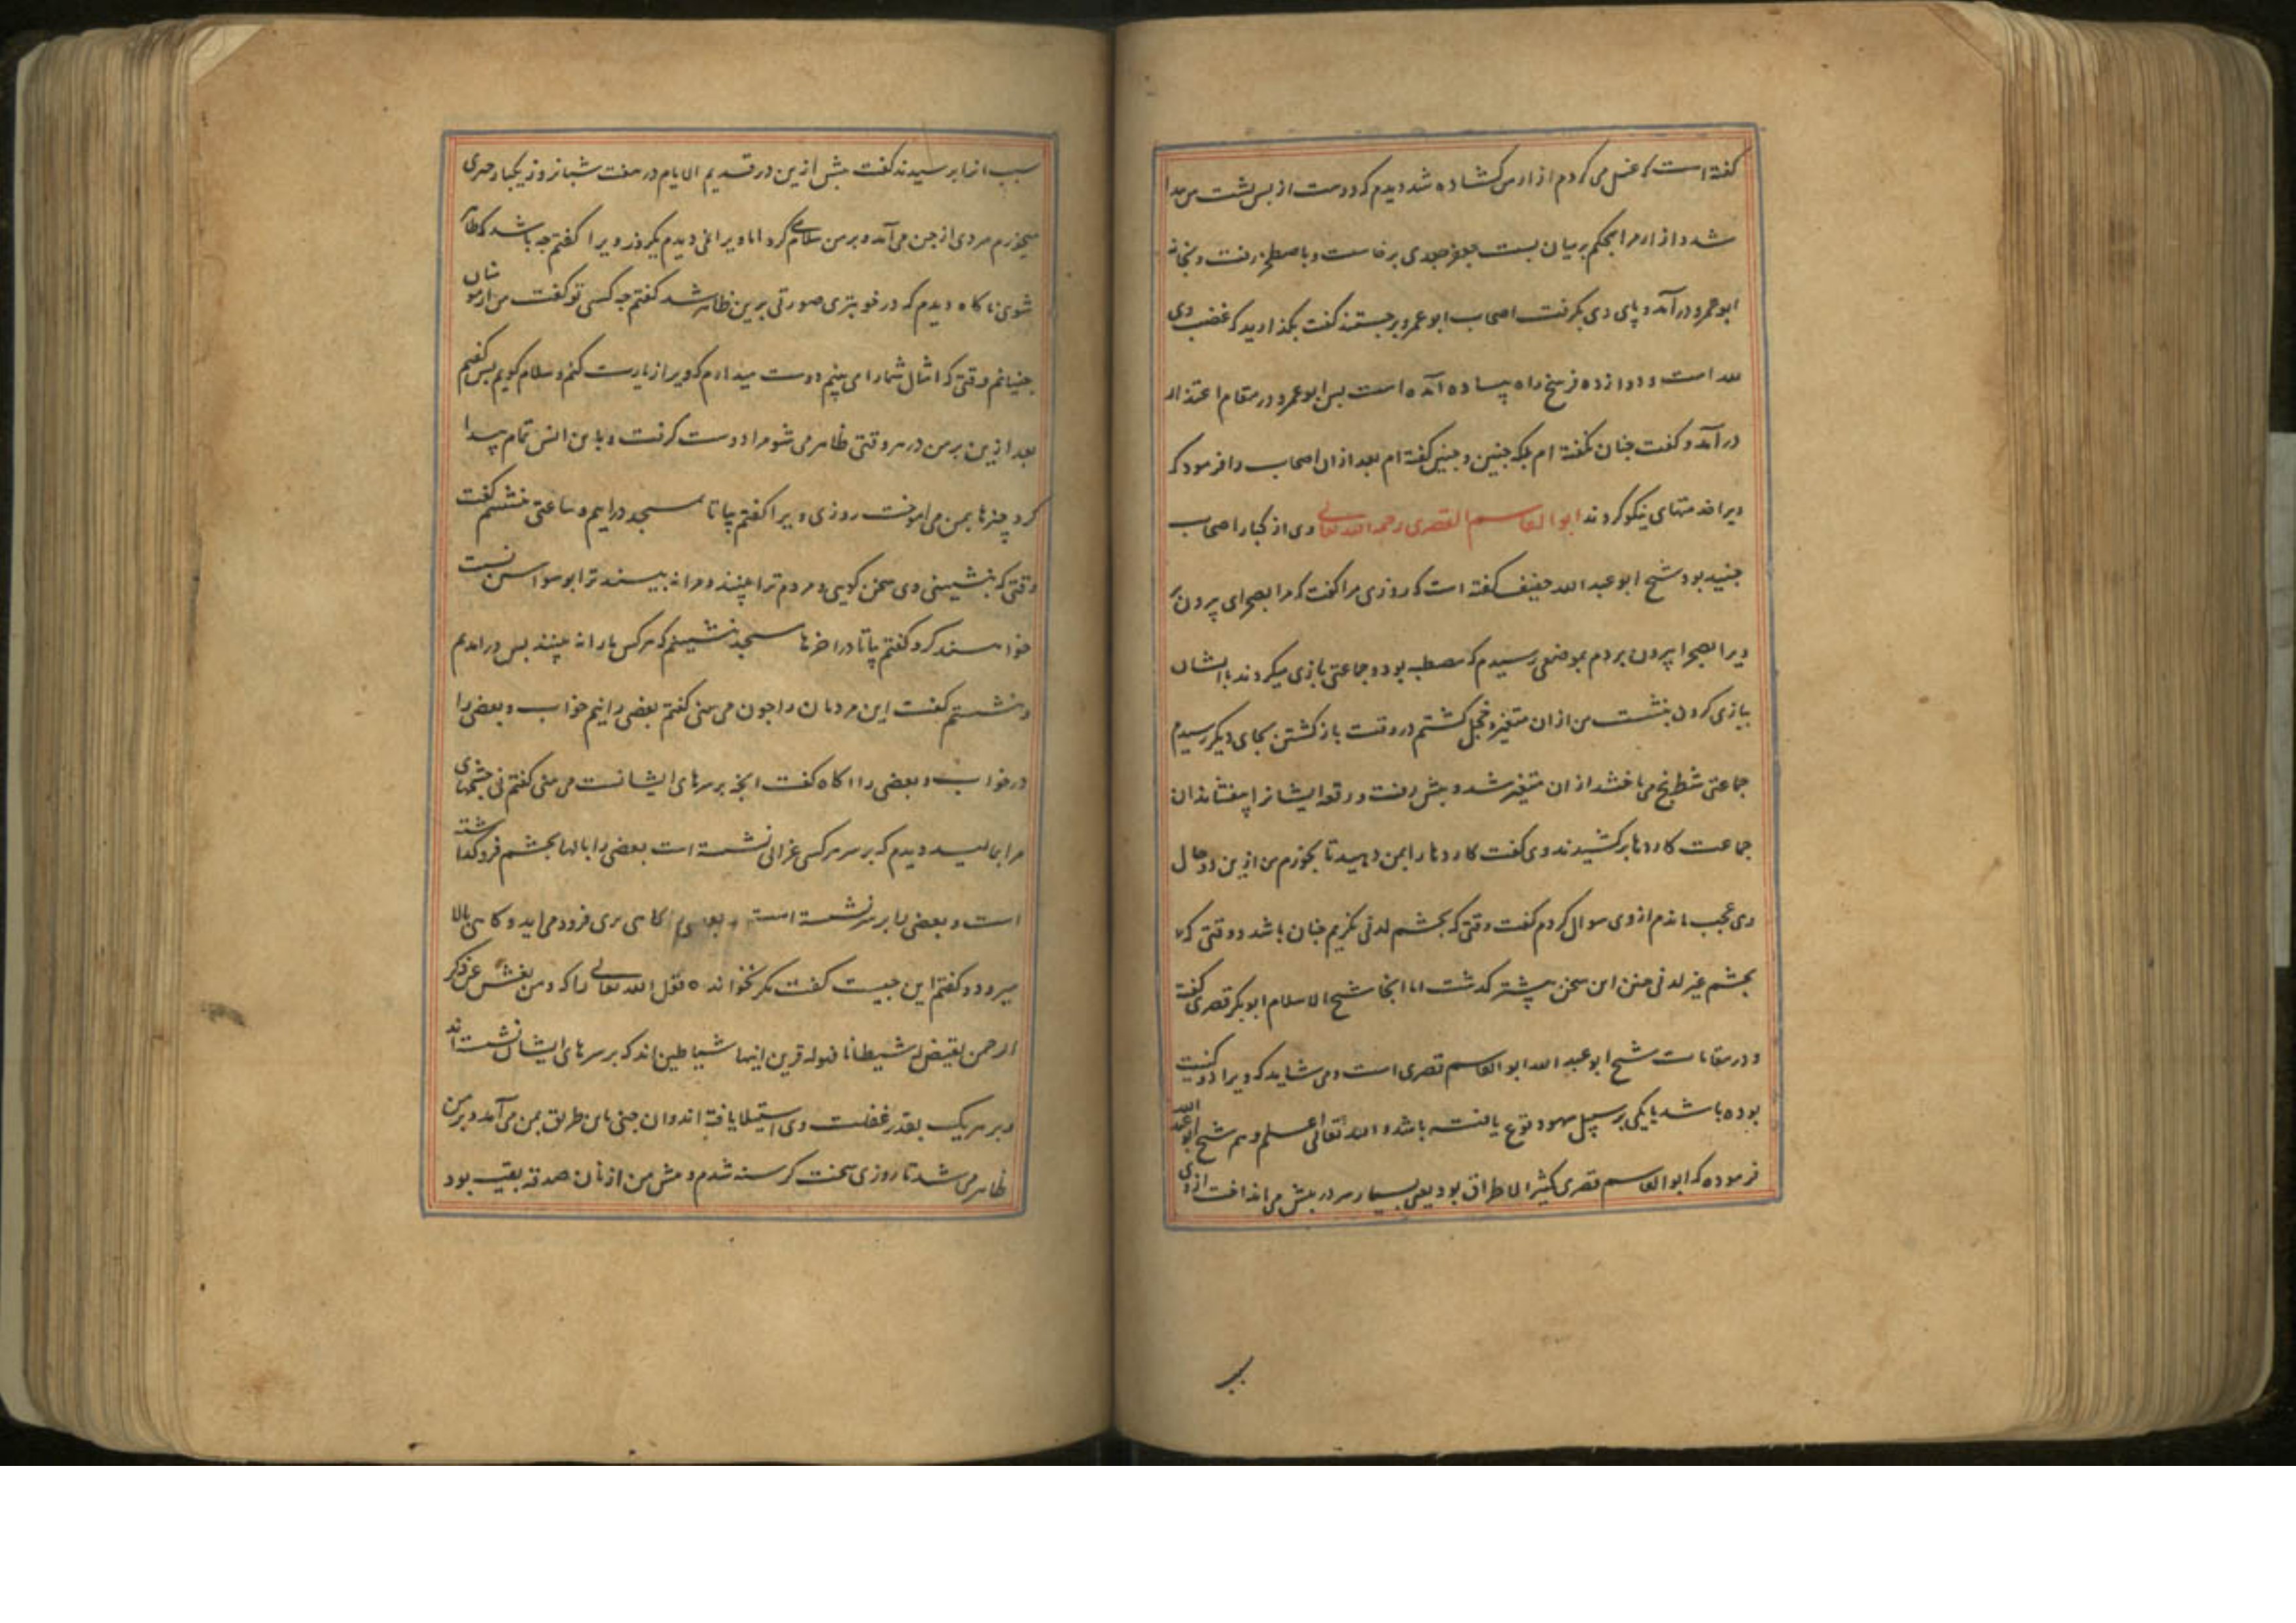 گفته است که غسل می کردم ازار من گشاده شد دیدم که دو دست از پس پشت من پیدا
شد و ازار مرا محکم بر میان بست جعفر جعدی برخاست و باصطخر رفت و بخانه
ابو عمرو درآمد و پای وی بگرفت اصحاب ابو عمرو برجستند گفت بگذارید که غضب وی
لله است و دوازده فرسخ راه پیاده آمده است بس ابو عمرو در مقام اعتذار
درآمد و گفت جنان نگفته ام بلکه جنین و جنین گفته ام بعد ازان اصحاب را فرمود که
ویرا خدمتهای نیکو کردند ابو القاسم القصری رحمه الله تعالی وی از کبار اصحاب
جنید بود شیخ ابو عبد الله خفیف گفته است که روزی مرا گفت که مرا بصحرای بیرون بر
ویرا بصحرا بیرون بردم بموضعی رسیدم که مصطبه بود و جماعتی بازی میکردند با ایشان
ببازی کردن بنشست من ازان متغیر و خجل گشتم در وقت باز گشتن بجای دیگر رسیدم
جماعتی شطرنج می باختند ازان متغیر شد و بیش رفت و رقعه ایشانرا بیفشاند آن
جماعت کاردها برکشیدند وی گفت کاردها را بمن دهید تا بخورم من ازین دو حال
وی عجب ماندم از وی سوال کردم گفت وقتی که بچشم لدنی نگریم جنان باشد و وقتی که
بچشم غیر لدنی جنین این سخن بیشتر گذشت اما آنجا شیخ الاسلام ابو بکر قصری گفته
و در مقامات شیخ ابو عبد الله ابو القاسم قصری است و می شاید که ویرا دو کنیت
بوده باشد یا یکی بر سبیل سهو وقوع یافته باشد و الله تعالی اعلم و هم شیخ ابو عبد الله
فرموده که ابو القاسم قصری کثیر الاطراق بود یعنی بسیار سر در بیش می انداخت از وی
سبب
سبب انرا برسیدند گفت بیش ازین در قدیم الایام در هفت شبانروز یکبار چیزی
میخوردم مردی از جن می آمد و بر من سلام می کرد اما ویرا نمی دیدم یکروز ویرا گفتم چه باشد که ظاهر
شوی ناکاه دیدم که در خوبتری صورتی بر من ظاهر شد گفتم جه کسی تو گفت من از مومنان
جنیانم وقتی که امثال شما را می بینم دوست میدارم که ویرا زیارت کنم و سلام گویم بس گفتم
بعد ازین بر من در هر وقتی ظاهر می شو مرا دوست گرفت و با من انس تمام پیدا
کرد چیزها بمن می اموخت روزی ویرا گفتم بیا تا بمسجد درایم و ساعتی بنشینیم گفت
وقتی که بنشینی و سخن گویی و مردم ترا بینند و مرا نه بینند ترا بوسواس نسبت
خواهند کرد گفتم بیا تا در اخرهای مسجد نشینیم که هر کس ما را نه بینند بس درامدیم
و نشستیم گفت این مردمان را جون می بینی گفتم بعضی را نیم خواب و بعضی را
در خواب و بعضی را اگاه گفت انچه بر سرهای ایشانست می بینی گفتم نی چشمهای
مرا بمالید دیدم که بر سر هر کسی غرابی نشسته است بعضی را بالها بچشم فروگذاشته
است و بعضی را بر سر نشسته است و بعضی را گاهی بری فرود می اید و گاهی بالا
میرود گفتم این چیست گفت مگر نخوانده قول الله تعالی را که ومن یعش عن ذکر
الرحمن نقیض له شیطانا فهو له قرین اینها شیاطین اند که بر سرهای ایشان نشسته اند
و بر هر یک بقدر غفلت وی استیلا یافته اند و ان جنی باین طریق بمن می آمد و بر من
ظاهر می شد تا روزی سخت گرسنه شدم و بیش من از نان صدقه بقیه بود